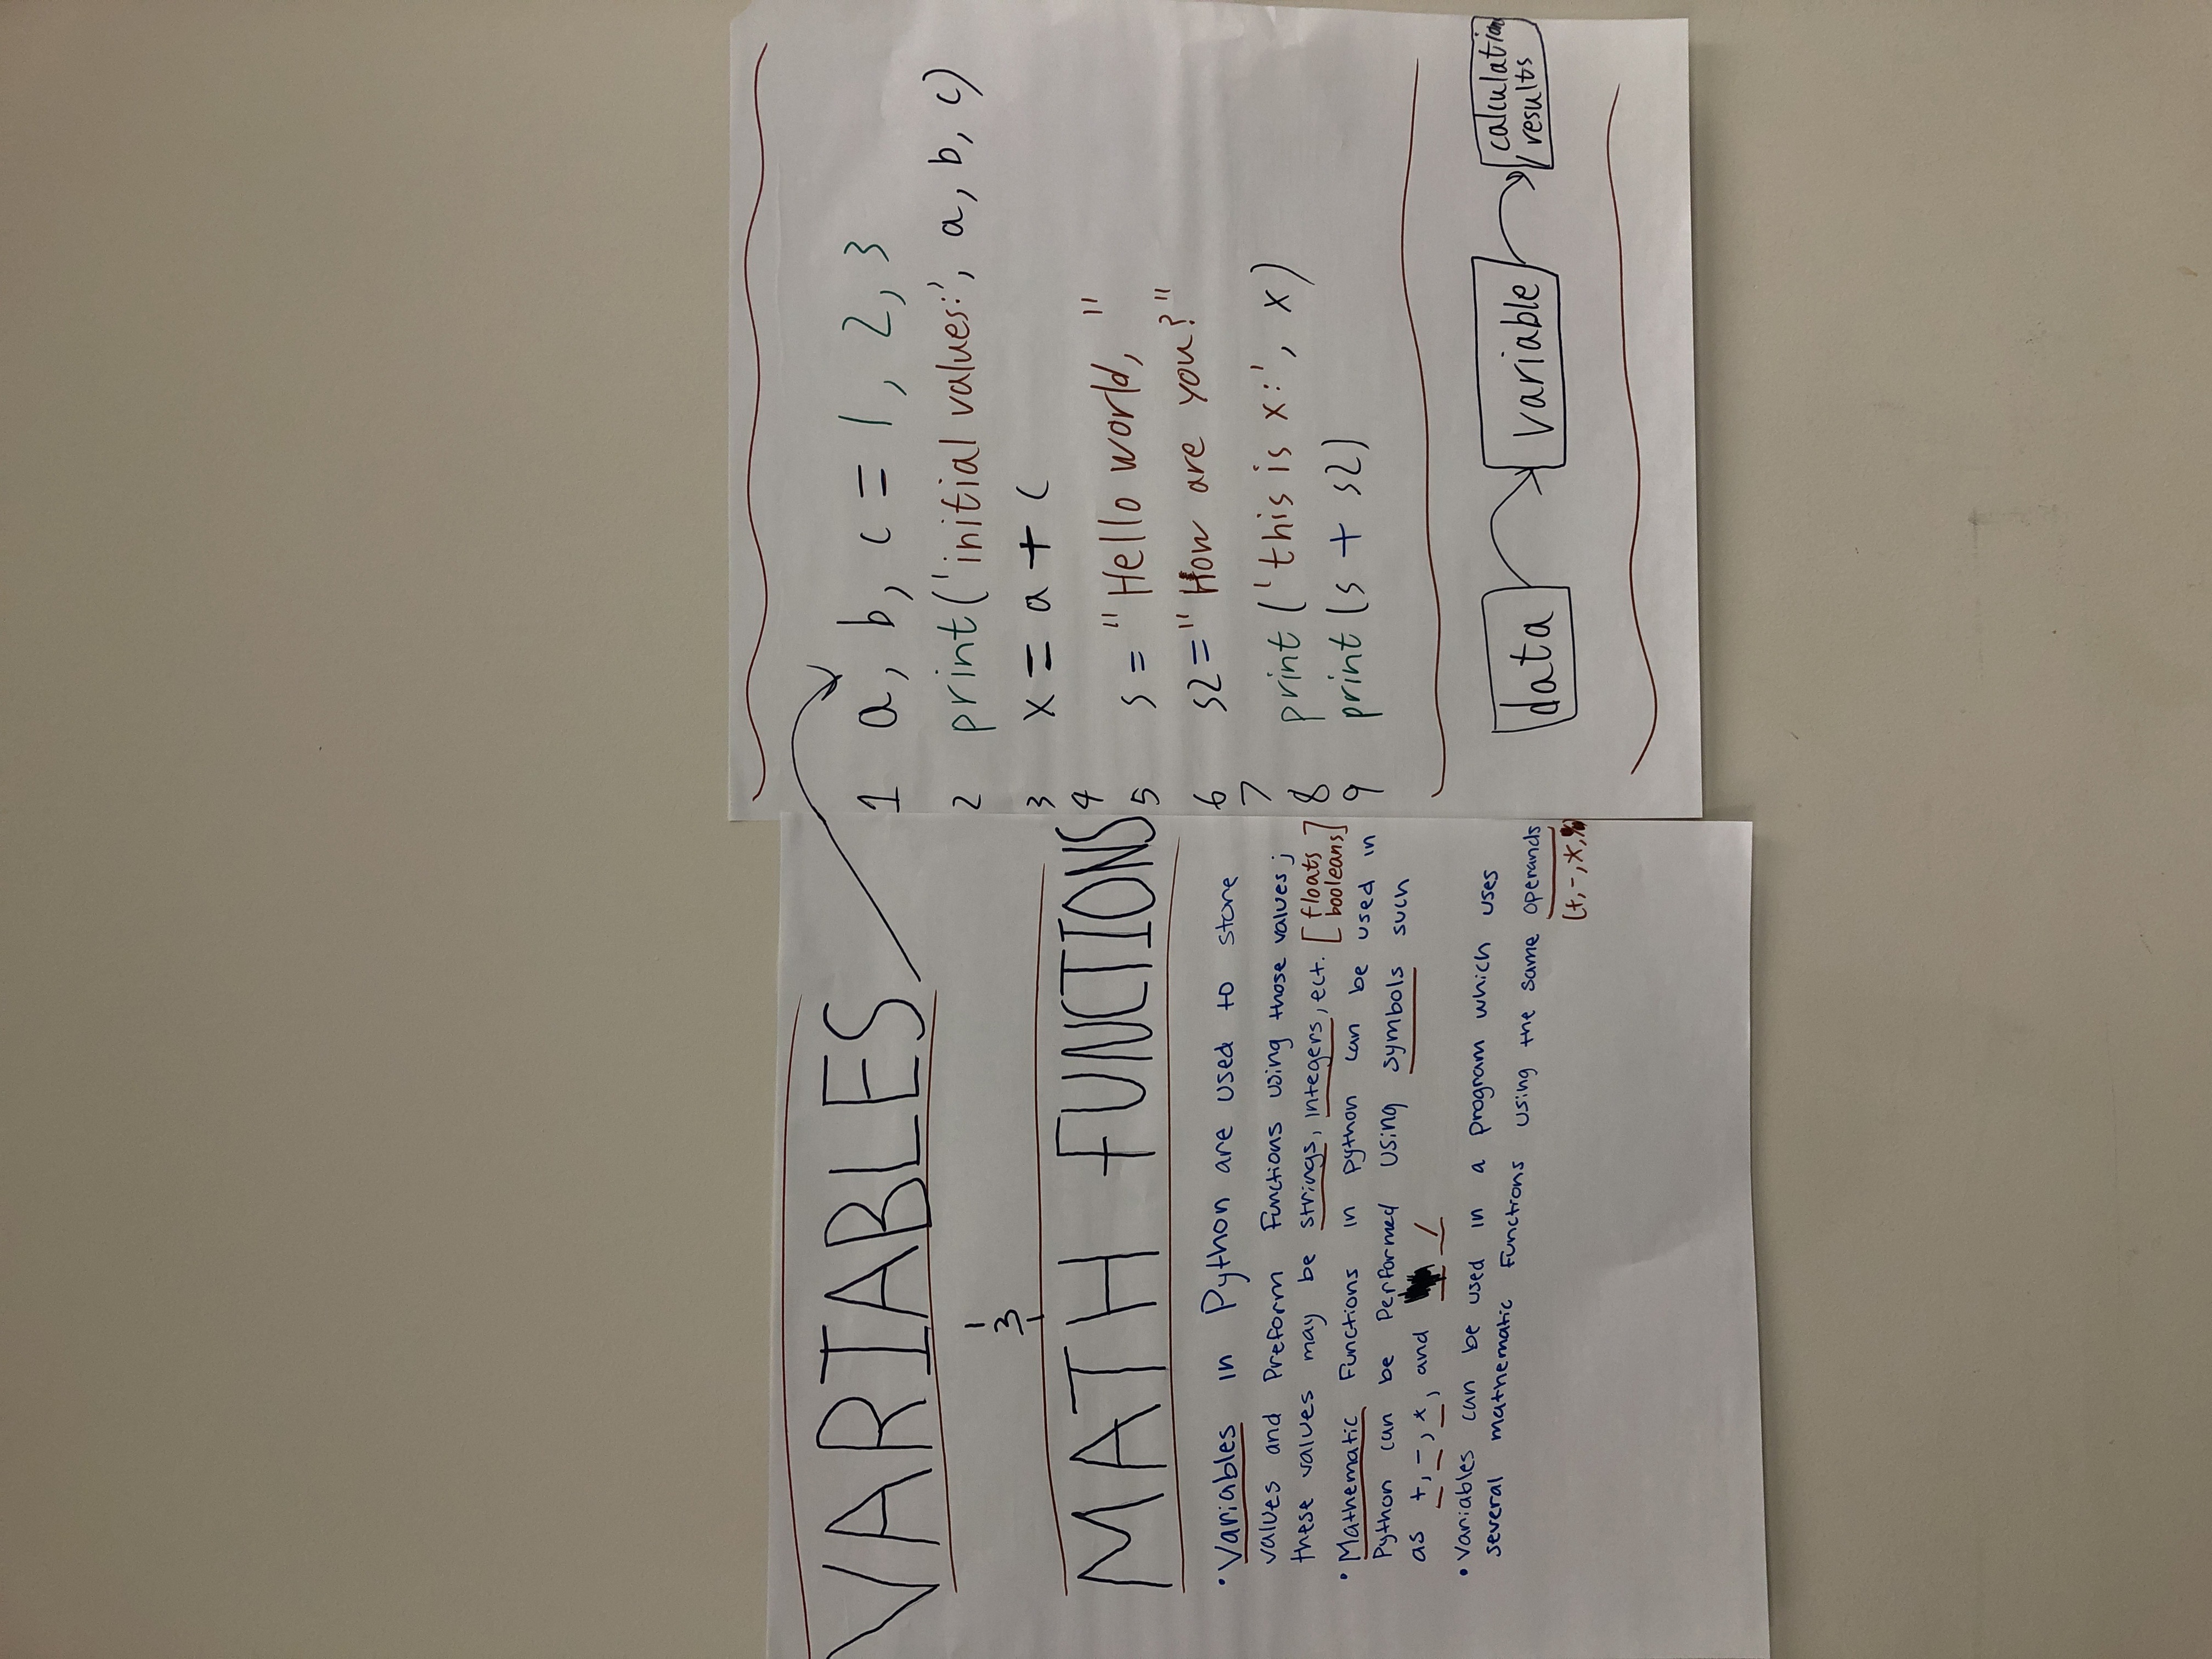 VARIABLES
&
MATH FUNCTIONS
• Variables in Python are used to store
values and Preform Functions using those values;
these values may be strings, integers, ect. [floats
booleans]
• Mathematic Functions in Python can be used in
Python can be Performed using symbols such
as +, -, *, and /
• Variables can be used in a program which uses
several mathematic Functions using the same operands
(+,-,*,%
1 a, b, c = 1, 2, 3
2 print('initial values:', a, b, c)
3 x = a + c
4
5 s = "Hello world, "
6 s2 = "How are you?"
7
8 print('this is x:', x)
9 print(s + s2)
data
variable
calculation
results